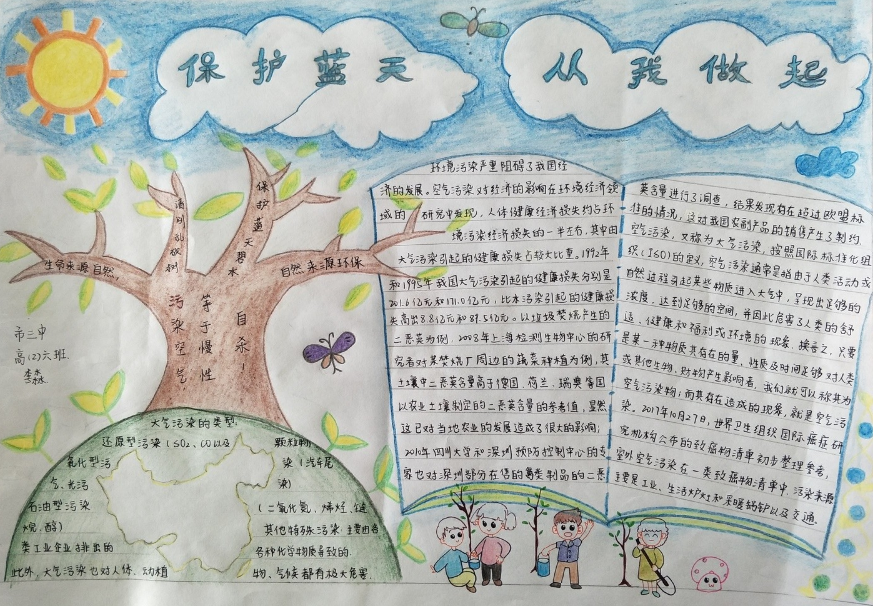 保护蓝天
从我做起
请别乱砍树
保护蓝天碧水
生命来源自然
自然来源环保
污染空气
等于慢性
自杀！
市三中
高(2)六班
李淼
环境污染严重阻碍了我国经
济的发展。空气污染对经济的影响在环境经济领
域的一研究中发现，人体健康经济损失约占环
境污染经济损失的一半左右，其中由
大气污染引起的健康损失占较大比重。1992年
和1995年我国大气污染引起的健康损失分别是
201.6亿元和171.0亿元，比水污染引起的健康损
失高出3.8亿元和
以垃圾焚烧产生的
二恶英为例，2008年上海检测生物中心的研
究者对某焚烧厂周边的蔬菜种植为例，其
土壤中二恶英含量高于德国、荷兰、瑞典等国
以农业土壤制定的二恶英含量的参考值，显然
这已对当地农业的发展造成了很大的影响，
2010年四川大学和深圳预防控制中心的专
家也对深圳部分在售的禽类制品的二恶
英含量进行了调查，结果发现有在超过欧盟标
准的情况，这对我国农副产品的销售产生了制约。
空气污染，又称为大气污染，按照国际标准化组
织(ISO)的定义，空气污染通常是指由于人类活动或
自然过程引起某些物质进入大气中，呈现出足够的
浓度，达到足够的空间，并因此危害了人类的舒
适、健康和福利或环境的现象。换言之，只要
是某一种物质其存在的量、性质及时间足够对人类
或其他生物、财物产生影响者，我们就可以称其为
空气污染物；而其存在造成的现象，就是空气污
染。2017年10月27日，世界卫生组织国际癌症研
究机构公布的致癌物清单初步整理参考，
室外空气污染在一类致癌物清单中。污染来源
主要是工业、生活炉灶和采暖锅炉以及交通。
大气污染的类型：
还原型污染(SO₂、CO以及 颗粒物)
氧化型污 染(汽车尾
气、光污 染)
石油型污染 (二氧化氮、烯烃、链
烷、醇) 其他特殊污染 主要由各
类工业企业排出的 各种化学物质导致的。
此外，大气污染也对人体、动植 物、气候都有极大危害.